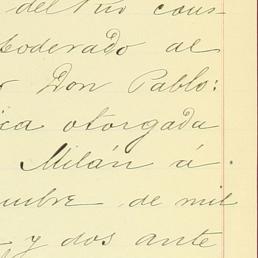 del Rio cons-
poderado al
r Don Pablo:
ica otorgada
Milán á
umbre de mil
y dos ante